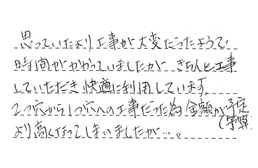 思っていたより工事が大変だったようで
時間がかかっていましたが きちんと工事
していただき快適に利用しています。
2つ穴から1つ穴への工事だった為 金額が予定
(予算)
より高くなってしまいましたが…。